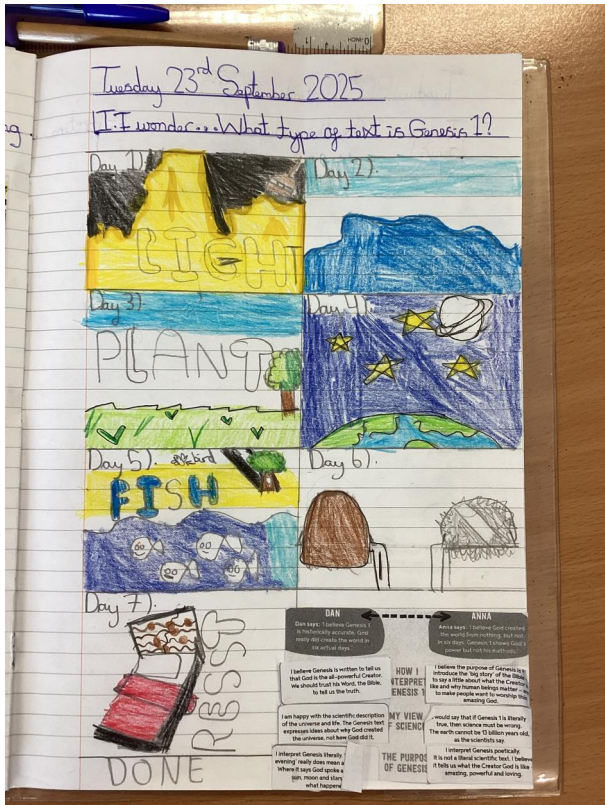 Tuesday 23rd September 2025
LI: I wonder... What type of text is Genesis 1?
Day 1).
LIGHT
Day 2).
Day 3).
PLANT
Day 4).
Day 5).
bird
FISH
Day 6).
Day 7).
RESST
DONE
DAN
Dan says: 'I believe Genesis 1
is historically accurate. God
really did create the world in
six actual days.
ANNA
Anna says: 'I believe God created
the world from nothing, but not
in six days. Genesis 1 shows God's
power but not his methods.
I believe Genesis is written to tell us
that God is the all-powerful Creator.
We should trust his Word, the Bible,
to tell us the truth.
HOW I
INTERPRET
GENESIS 1
I believe the purpose of Genesis is
introduce the 'big story' of the Bible
to say a little about what the Creator
like and why human beings matter –
to make people want to worship this
amazing God.
I am happy with the scientific description
of the universe and life. The Genesis text
expresses ideas about why God created
the universe, not how God did it.
MY VIEW
SCIENC
would say that if Genesis 1 is literally
true, then science must be wrong.
The earth cannot be 13 billion years old,
as the scientists say
I interpret Genesis literally
evening' really does mean a
Where it says God spoke a
sun, moon and stars
what happene
THE PURPOS
OF GENESIS
I interpret Genesis poetically.
It is not a literal scientific text. I believe
it tells us what the Creator God is like
amazing, powerful and loving.